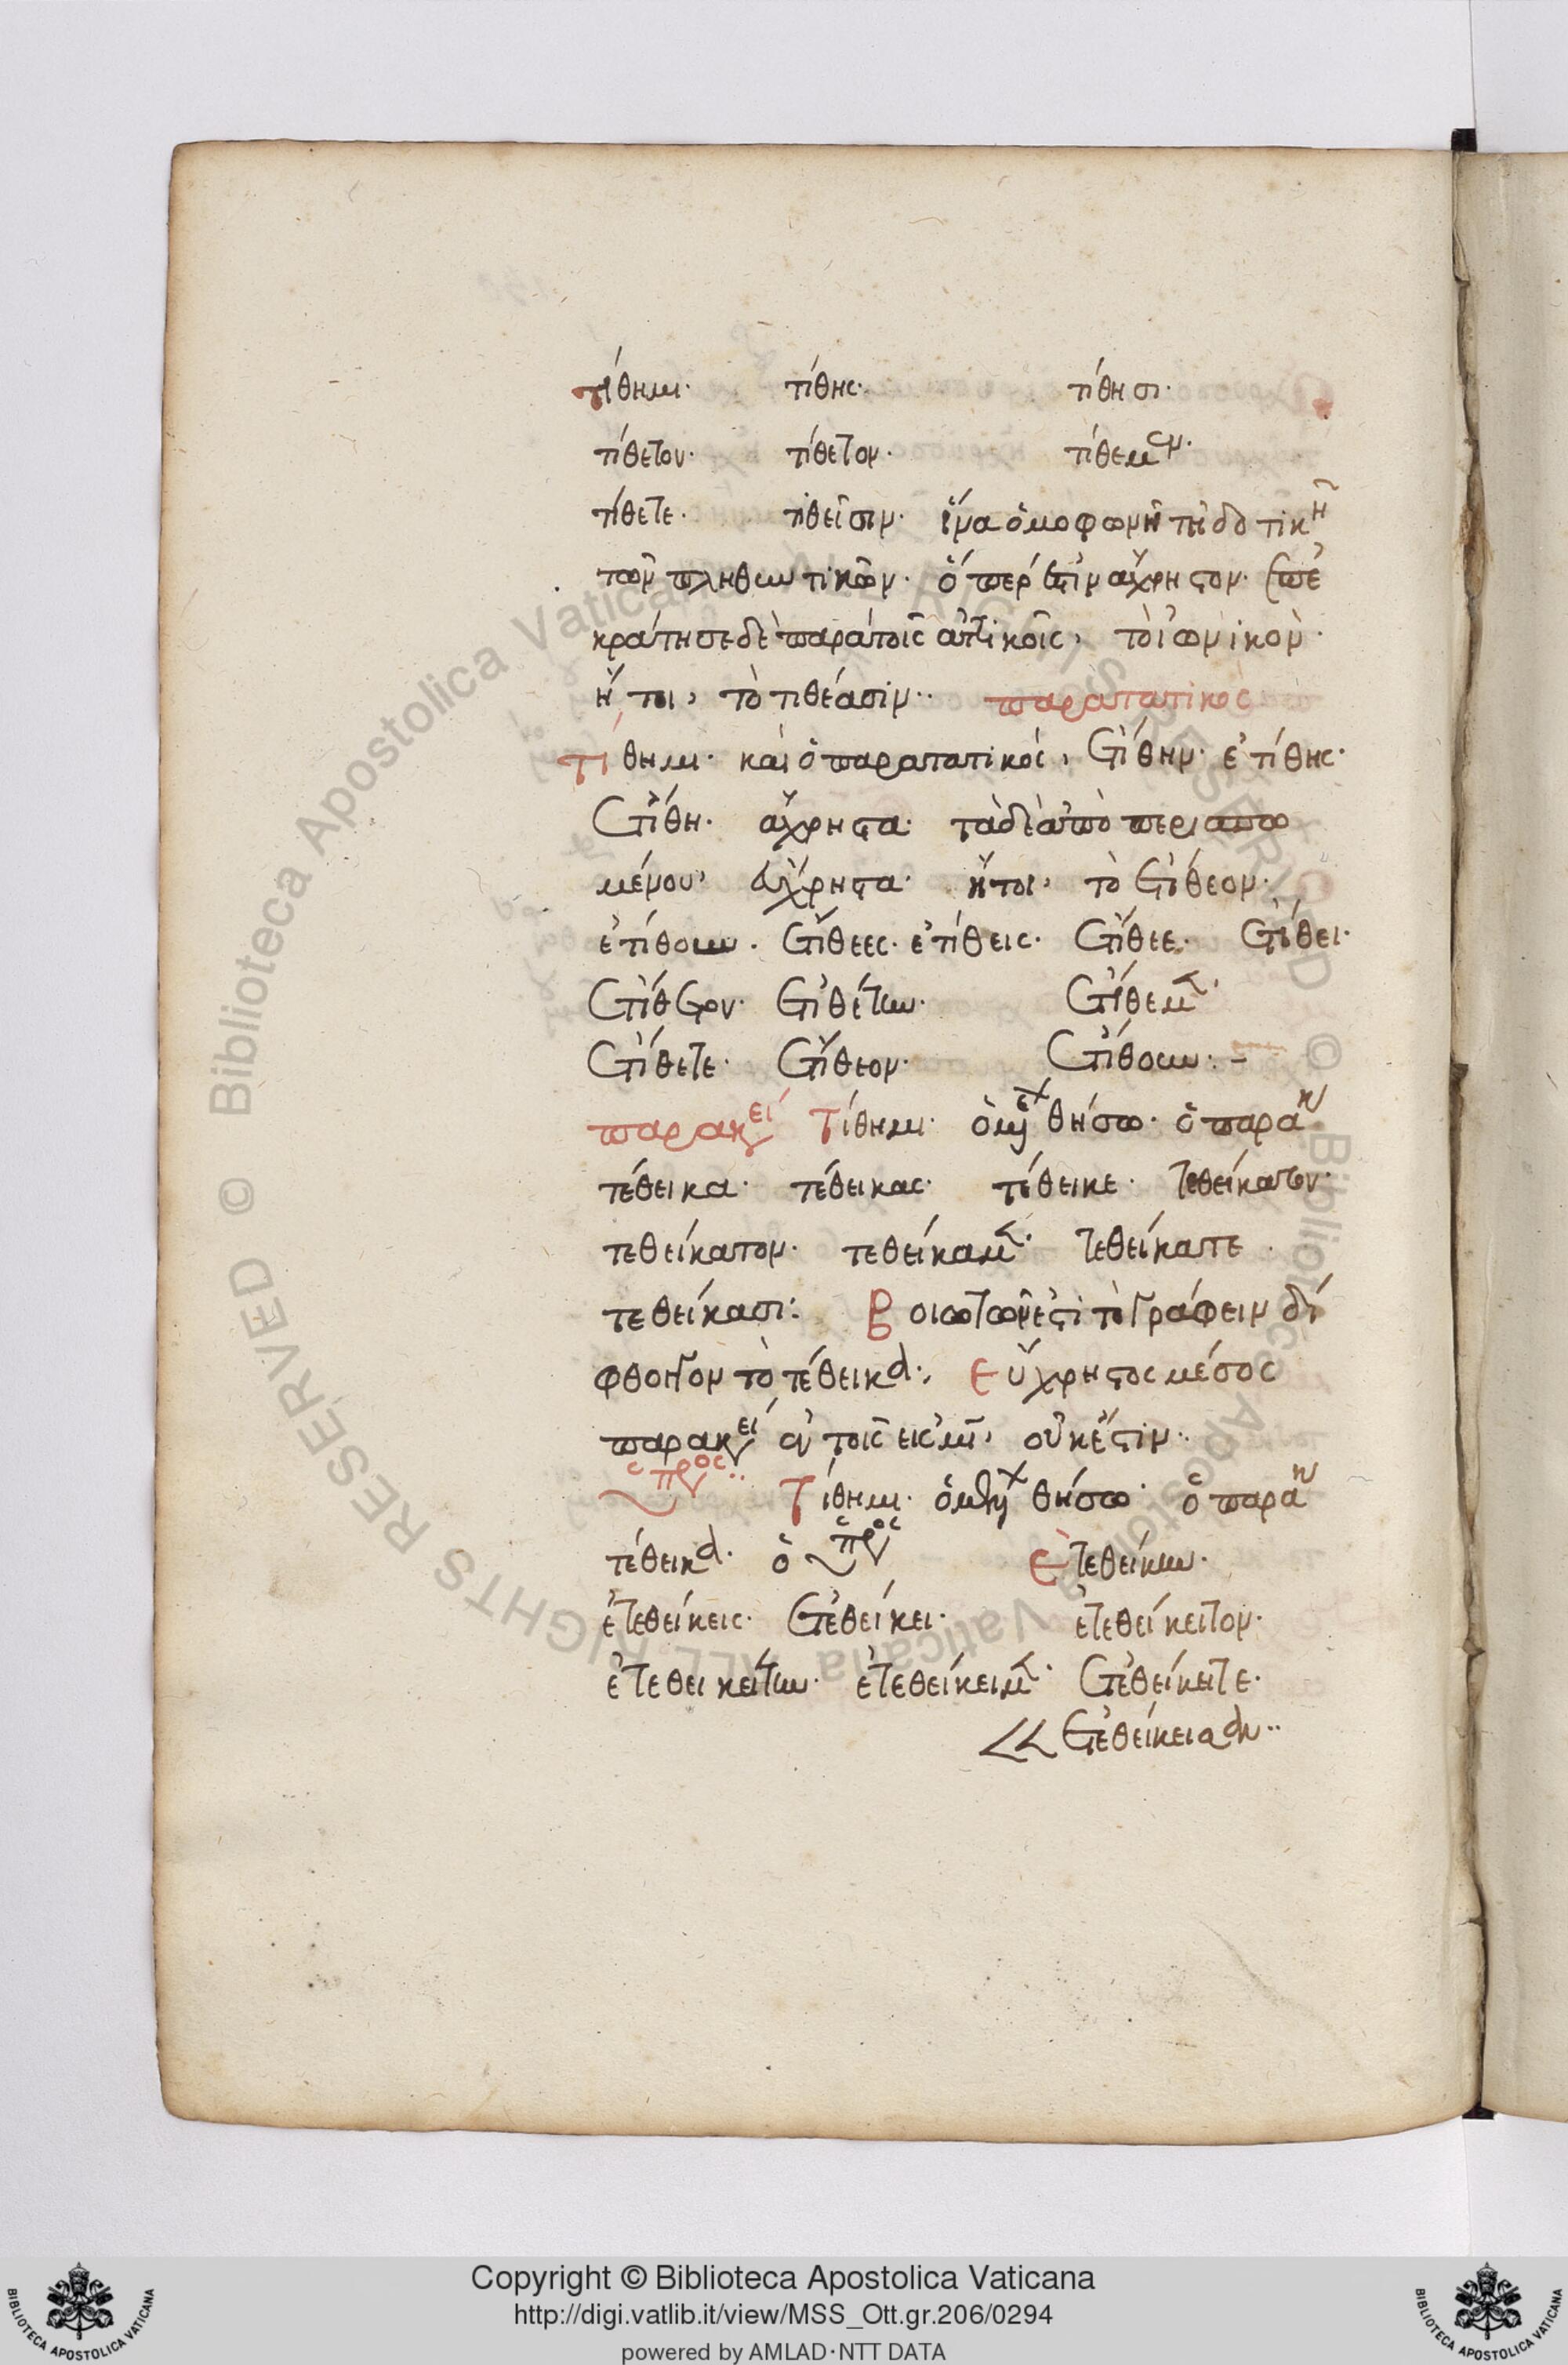 τίθημι· τίθης· τίθησι·
τίθετον· τίθετον· τίθεμεν·
τίθετε· τιθεῖσιν· ἵνα ὁμοφωνῆ τῆ δοτικῆ
τῶν πληθυντικῶν· ὅπερ ἐστὶν ἄχρηστον· ἐπε
κράτησε δὲ παρὰ τοῖς ἀττικοῖς, τὸ ἰωνικὸν·
ἤτοι, τὸ τιθέασιν·· παρατατικὸς
τίθημι· καὶ ὁ παρατατικός, ἐτίθην· ἐτίθης·
ἐτίθη· ἄχρηστα· τὰ δὲ ἀπὸ περισπω
μένου, εὔχρηστα· ἤτοι, τὸ ἐτίθεον·
ἐτίθουν· ἐτίθεες· ἐτίθεις· ἐτίθεε· ἐτίθει·
ἐτίθετον· ἐτιθέτην· ἐτίθεμεν·
ἐτίθετε· ἐτίθεον· ἐτίθουν·–
παρακεί τίθημι· ὁ μέ θήσω· ὁ παρα
τέθεικα· τέθεικας· τέθεικε· τεθείκατον·
τεθείκατον· τεθείκαμεν· τεθείκατε·
τεθείκασι: Βοιωτῶν ἐστὶ τὸ γράφειν δί
φθογγον τὸ τέθεικα·, εὔχρηστος μέσος
παρακεί ἐν τοῖς εἰς μι, οὐκ ἔστιν··
Τίθημι· ὁ μέλλ θήσω· ὁ παρα
τέθεικα· ὁ ἐτεθείκειν·
ἐτεθείκεις· ἐτεθείκει· ἐτεθείκειτον·
ἐτεθεικείτην· ἐτεθείκειμεν· ἐτεθείκειτε·
ἐτεθείκεισαν··
Copyright © Biblioteca Apostolica Vaticana
http://digi.vatlib.it/view/MSS_Ott.gr.206/0294
powered by AMLAD·NTT DATA
BIBLIOTECA APOSTOLICA VATICANA
BIBLIOTECA APOSTOLICA VATICANA
© Biblioteca Apostolica Vaticana ALL RIGHTS RESERVED